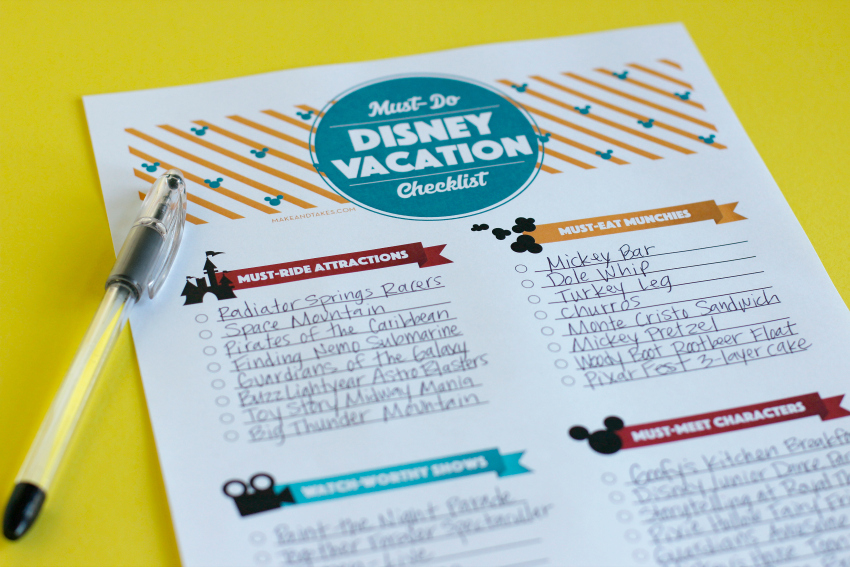 Must-Do
DISNEY
VACATION
Checklist
MAKEANDTAKES.COM
MUST-RIDE ATTRACTIONS
Radiator Springs Racers
Space Mountain
Pirates of the Caribbean
Finding Nemo Submarine
Guardians of the Galaxy
Buzz Lightyear Astro Blasters
Toy Story Midway Mania
Big Thunder Mountain
MUST-EAT MUNCHIES
Mickey Bar
Dole Whip
Turkey Leg
Churros
Monte Cristo Sandwich
Mickey Pretzel
Woody Boot Rootbeer Float
Pixar Fest 3-layer cake
WATCH-WORTHY SHOWS
Paint the Night Parade
Together Forever Spectacular
Live
MUST-MEET CHARACTERS
Goofy's Kitchen Breakfa
Disney Junior Dance Par
Storytelling at Royal
Pixie Hollow Fairy
Guardians Awesome